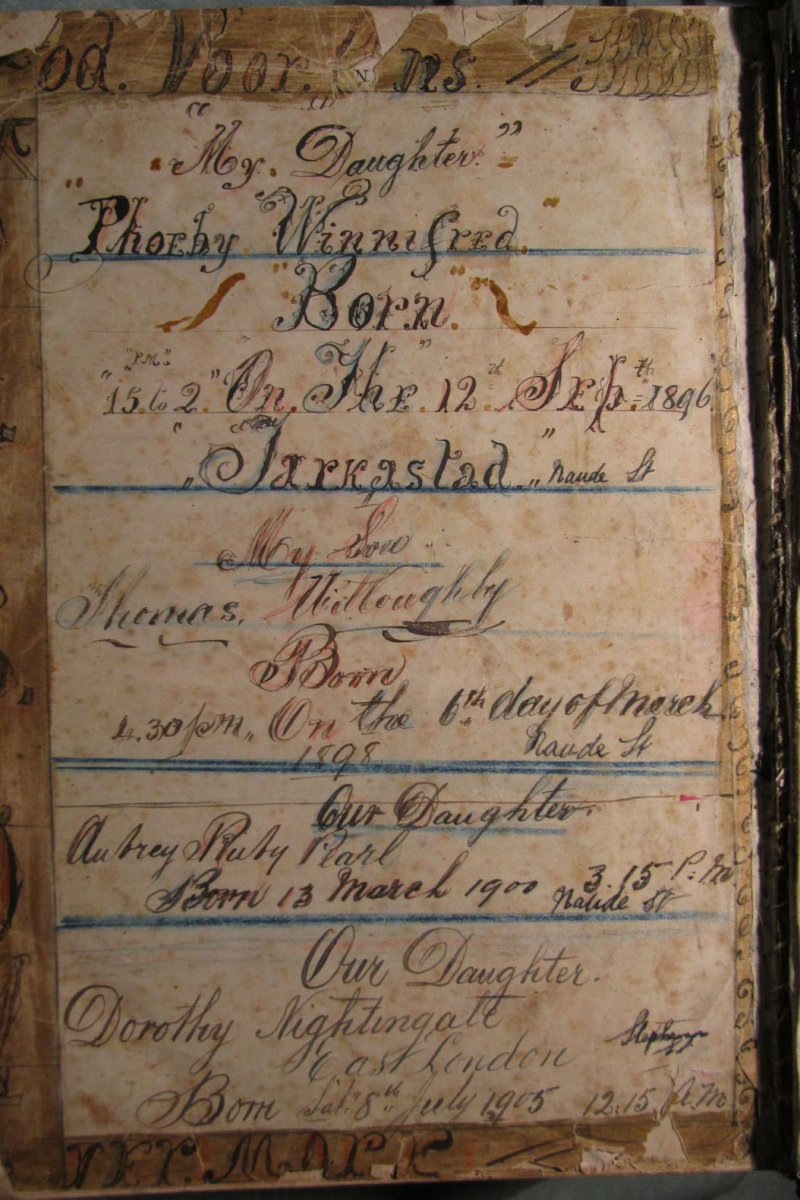 od. Voor. ns.
"My. Daughter."
"Phoeby Winnifred."
"Born."
"P.M."
"15. to 2." "On. The." 12th Septh. 1896
"Tarkastad." Naude St
My Son
Thomas. Willoughby
Born
4.30 pm. On the 6th day of March
1898 Naude St
Our Daughter.
Aubrey Ruby Pearl
Born 13 March 1900 3.15 P.M
Naude St
Our Daughter.
Dorothy Nightingale
East London
Born Sat. 8th July 1905 12.15. A.M